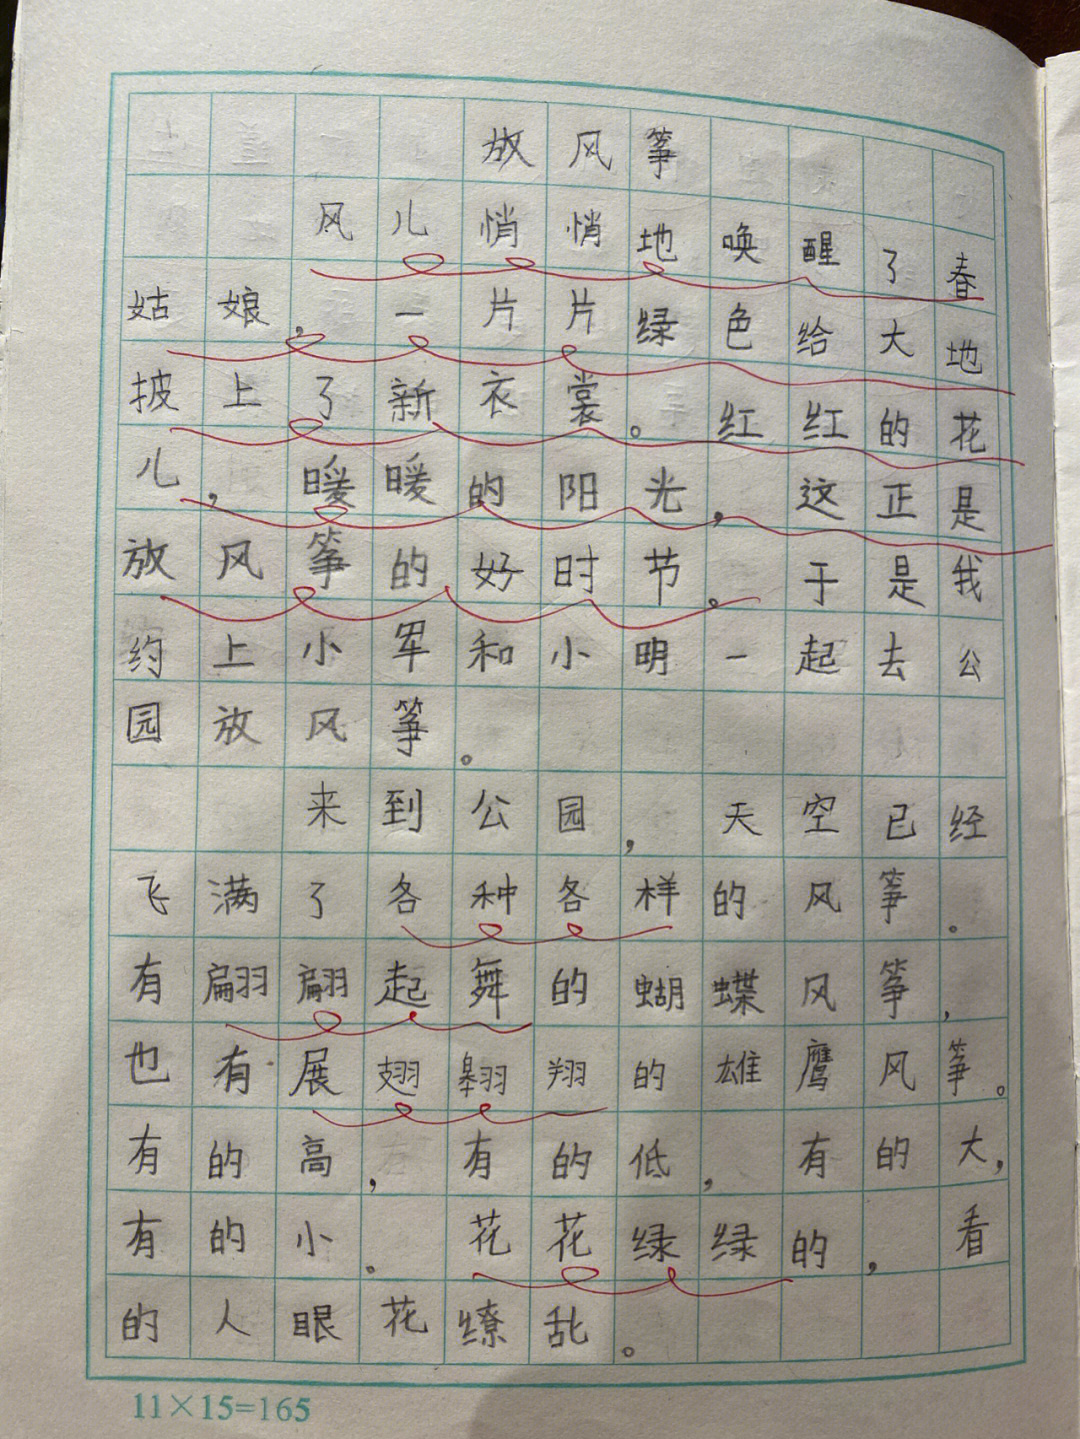 放风筝
风儿悄悄地唤醒了春
姑娘，一片片绿色给大地
披上了新衣裳。红红的花
儿，暖暖的阳光，这正是
放风筝的好时节。于是我
约上小军和小明一起去公
园放风筝。
来到公园，天空已经
飞满了各种各样的风筝。
有翩翩起舞的蝴蝶风筝，
也有展翅翱翔的雄鹰风筝。
有的高，有的低，有的大，
有的小。花花绿绿的，看
的人眼花缭乱。
11×15=165